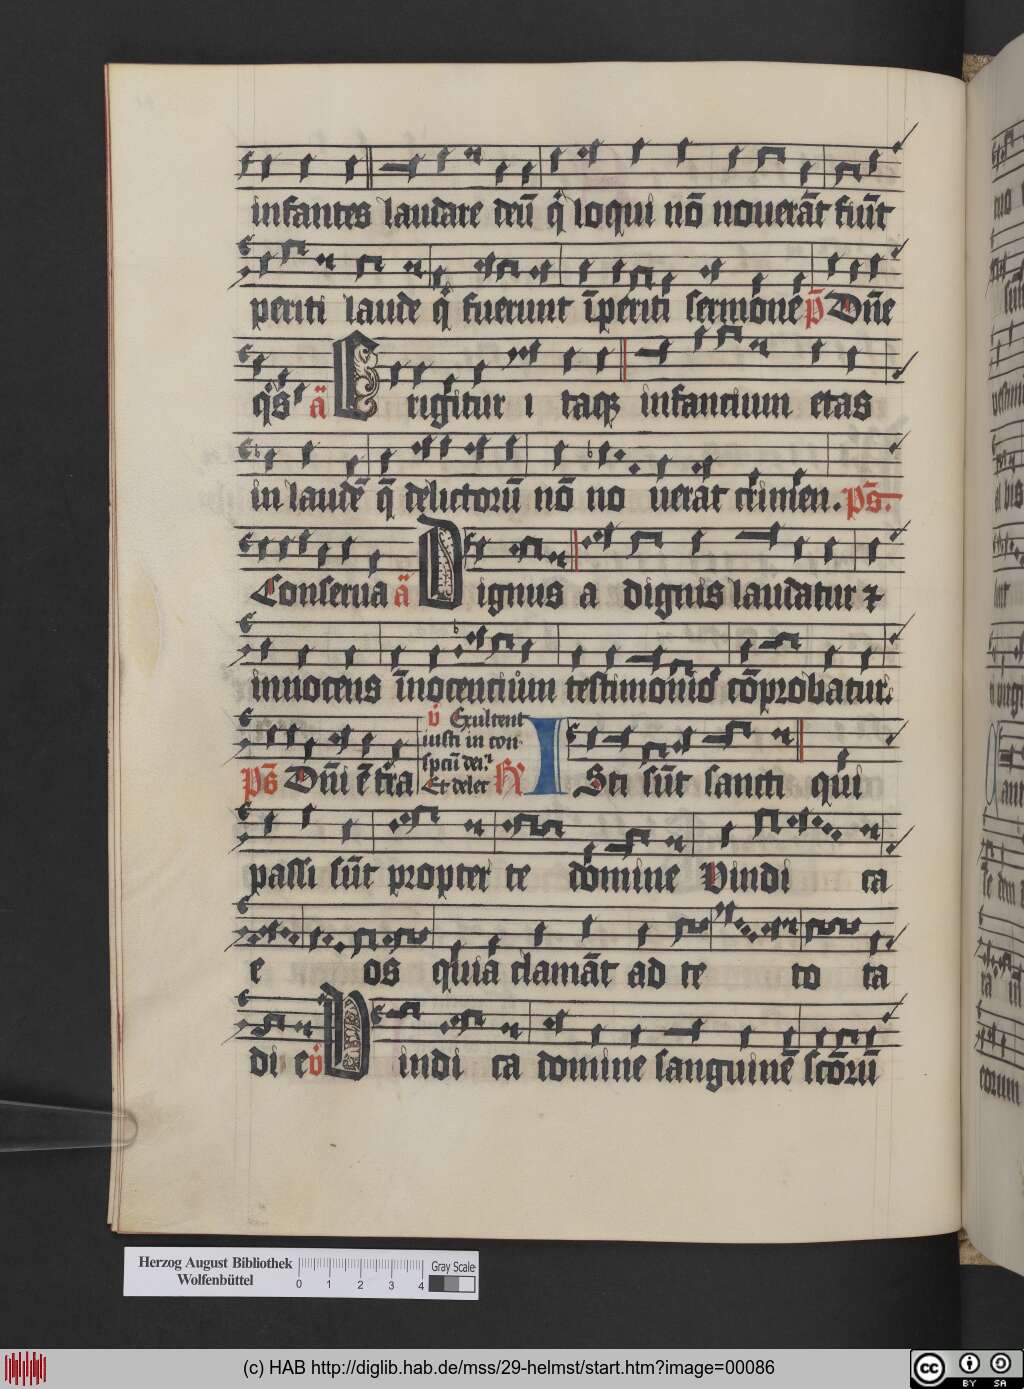 infantes laudare deū q̄ loqui nō nouerāt fuūt
periti laude q̄ fuerunt īperiti sermone p̄ Dn̄e
q̄s ā Erigitur itaqꝫ infancium etas
in laudē q̄ delictorū nō nouerāt crimen. Ps̄.
Conserua ā Dignus a dignis laudatur ⁊
innocens īnocencium testimonio cōprobatur.
Ps̄ Dn̄i ē tr̄a v̄ Exultent
iusti in con
spc̄u dei.
Et delet R̄ ISti sūt sancti qui
passi sūt propter te domine Vindica
eos quia clamāt ad te tota
die v̄ Vindica domine sanguinē sc̄orū
Herzog August Bibliothek
Wolfenbüttel
0 1 2 3 4
Gray Scale
(c) HAB http://diglib.hab.de/mss/29-helmst/start.htm?image=00086
cc BY SA